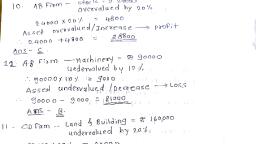 10. AB Firm → stock → ₹ 24000
overvalued by 20%
24000 × 20% = 4800
Asset overvalued/Increase → profit
24000 + 4800 = 28800
Ans - C
12 AB Firm → Machinery - ₹ 90000
undervalued by 10%
90000 × 10% = 9000
Asset undervalued/Decrease → Loss
90000 - 9000 = 81000
Ans - B.
11 - CD Firm - Land & Building = ₹ 160,000
undervalued by 20%.